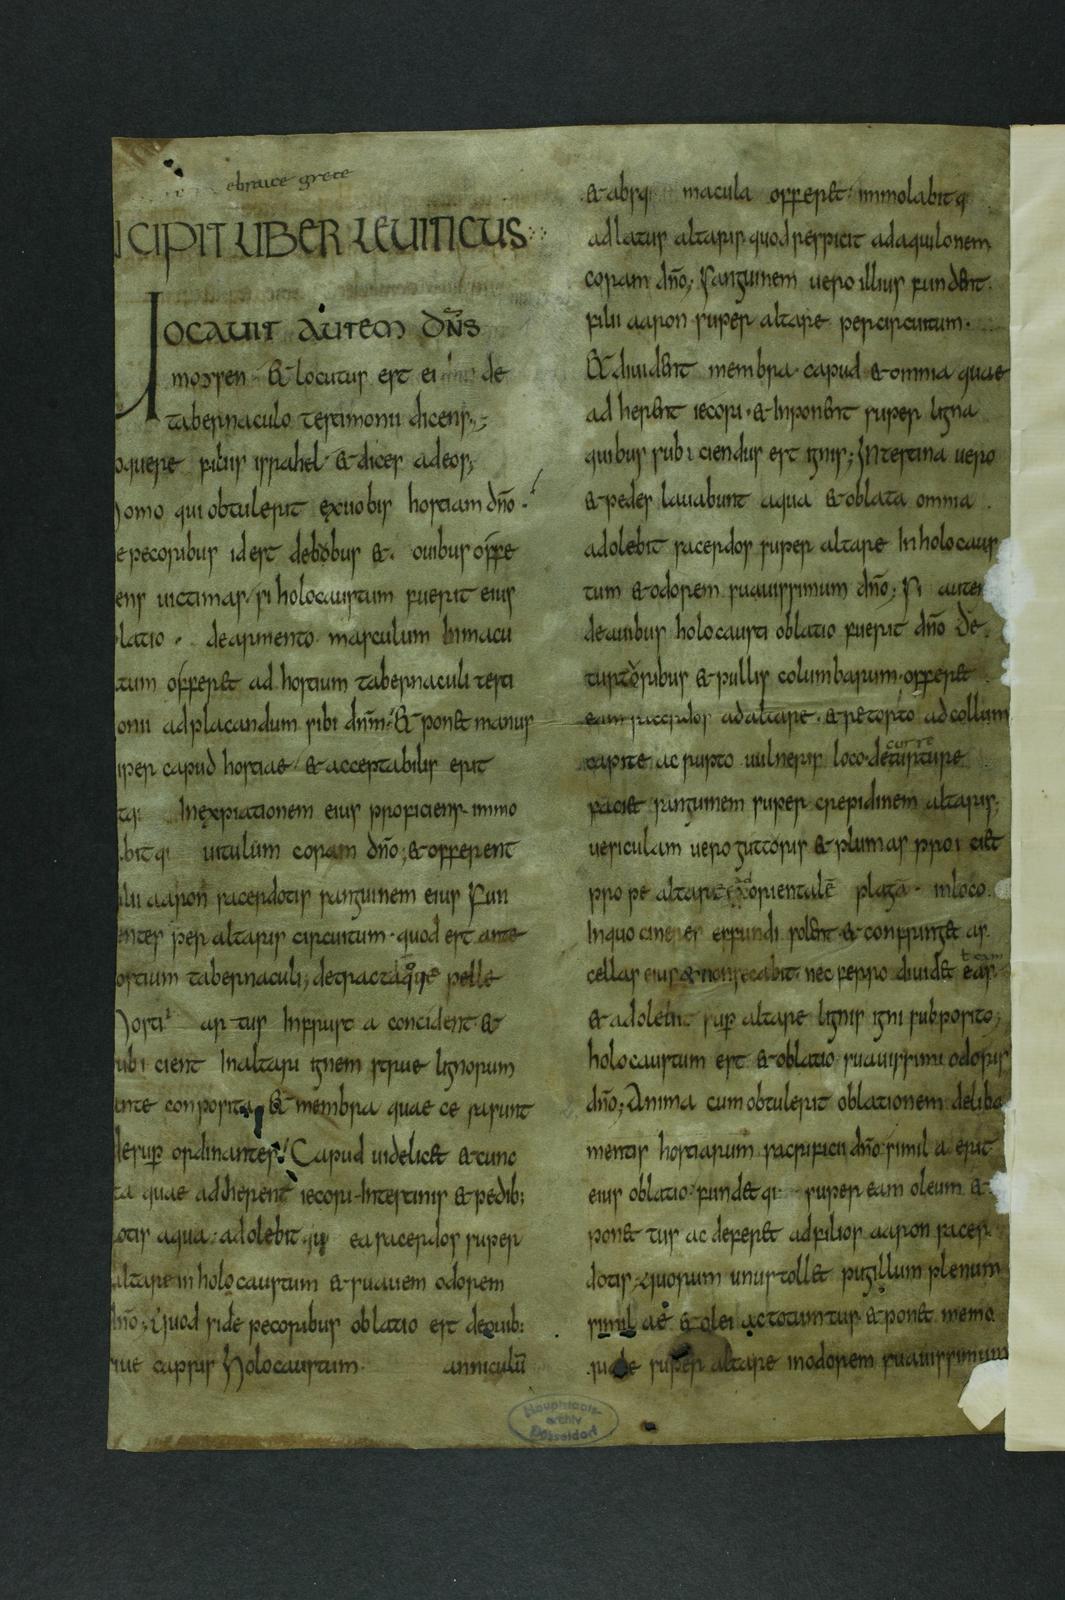 ebraice grece
CIPIT LIBER LEUITICUS
Uocauit autem dn̄s
moysen & locutus est ei de
tabernaculo testimonii dicens;
oquere filiis israhel & dices ad eos;
homo qui obtulerit ex uobis hostiam dn̄o
e pecoribus id est de bobus & ouibus offe
ens uictimas si holocaustum fuerit eius
blatio de armento masculum inmacu
atum offeret ad hostium tabernaculi testi
onii ad placandum sibi dn̄m & ponet manus
uper capud hostiae & acceptabilis erit
tq; In expiationem eius proficiens immo
abitq; uitulum coram dn̄o; & offerent
ilii aaron sacerdotis sanguinem eius fun
entes per altaris circuitum quod est ante
ostium tabernaculi; detractaque pelle
hosti artus In frusta concident &
ubicient In altari ignem strue lignorum
ante composita & membra quae cesa sunt
desup ordinantes Capud uidelicet & cunc
ta quae adherent iecori Intestinis & pedib;
lotis aqua adolebitq; ea sacerdos super
altare in holocaustum & suauem odorem
dn̄o; Quod si de pecoribus oblatio est de ouib;
siue capris holocaustum anniculū
& absq; macula offeret immolabitq;
ad latus altaris quod respicit ad aquilonem
coram dn̄o; sanguinem uero illius fundent
filii aaron super altare per circuitum
& diuident membra capud & omnia quae
adherent iecori & Inponent super ligna
quibus subiciendus est ignis; Intestina uero
& pedes lauabunt aqua & oblata omnia
adolebit sacerdos super altare In holocaus
tum & odorem suauissimum dn̄o; si autem
de auibus holocausti oblatio fuerit dn̄o de
turtoribus & pullis columbarum offeret
eam sacerdos ad altare & retorto ad collum
capite ac rupto uulneris loco decurrere
faciet sanguinem super crepidinem altaris;
uesiculam uero gutturis & plumas proiciet
prope altare ad orientalē plagā in loco
In quo cineres effundi solent & confringet as
cellas eius & non secabit nec ferro diuidet eas
& adolebit sup altare lignis igni subposito;
holocaustum est & oblatio suauissimi odoris
dn̄o; Anima cum obtulerit oblationem deliba
mentis hostiarum sacrificii dn̄o simila erit
eius oblatio fundetq; super eam oleum &
ponet tus ac deferet ad filios aaron sacer
dotis quorum unus tollet pugillum plenum
simila & olei ac totum tus & ponet memo
riale super altare in odorem suauissimum
Hauptstaats-
archiv
Düsseldorf